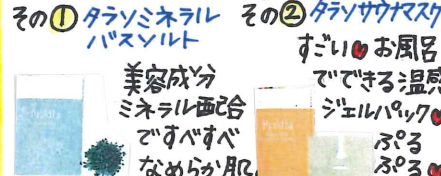 その① タラソミネラル
バスソルト
美容成分
ミネラル配合
ですべすべ
なめらか肌
その② タラソサウナマスク
すごい♥お風呂
でできる温感
ジェルパック♥
ぷる
ぷる♥